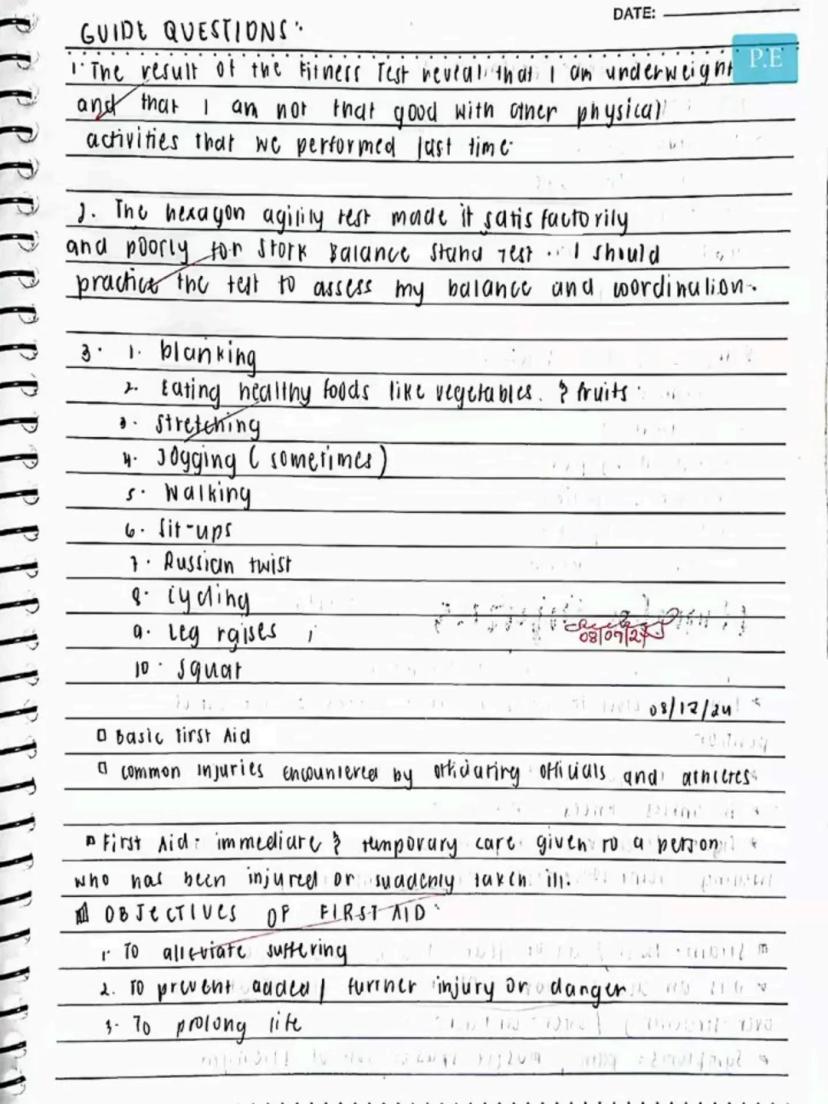 DATE:
GUIDE QUESTIONS:
P.E
1. The result of the Fitness Test reveal that I am underweight
and that I am not that good with other physical
activities that we performed last time.
2. The hexagon agility test made it satisfactorily
and poorly for Stork Balance Stand Test. I should
practice the test to assess my balance and coordination.
3. 1. blanking
2. Eating healthy foods like vegetables. & fruits.
3. Stretching
4. Jogging (sometimes)
5. Walking
6. Sit-ups
7. Russian twist
8. Cycling
9. Leg raises
10. Squat
08/12/24
Basic First Aid
common injuries encountered by officiating officials and athletes
First Aid: immediate & temporary care given to a person
who has been injured or suddenly taken ill.
OBJECTIVES OF FIRST AID:
1. To alleviate suffering
2. To prevent added / further injury or danger
3. To prolong life